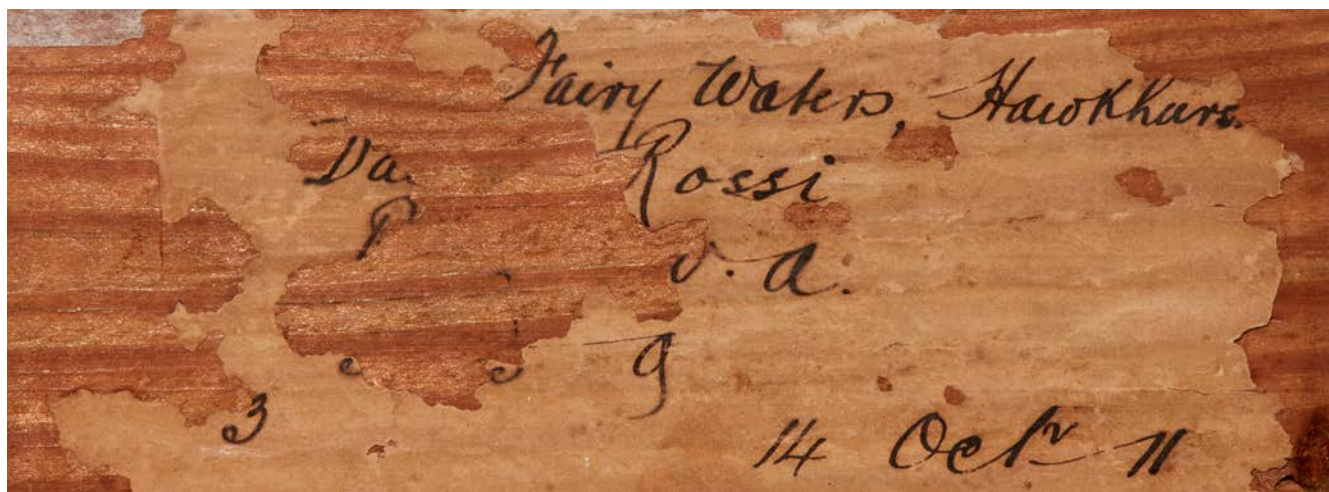 Fairy Waters, Hawkhurs
Da Rossi
P v. a.
g
3
14 Octr 11